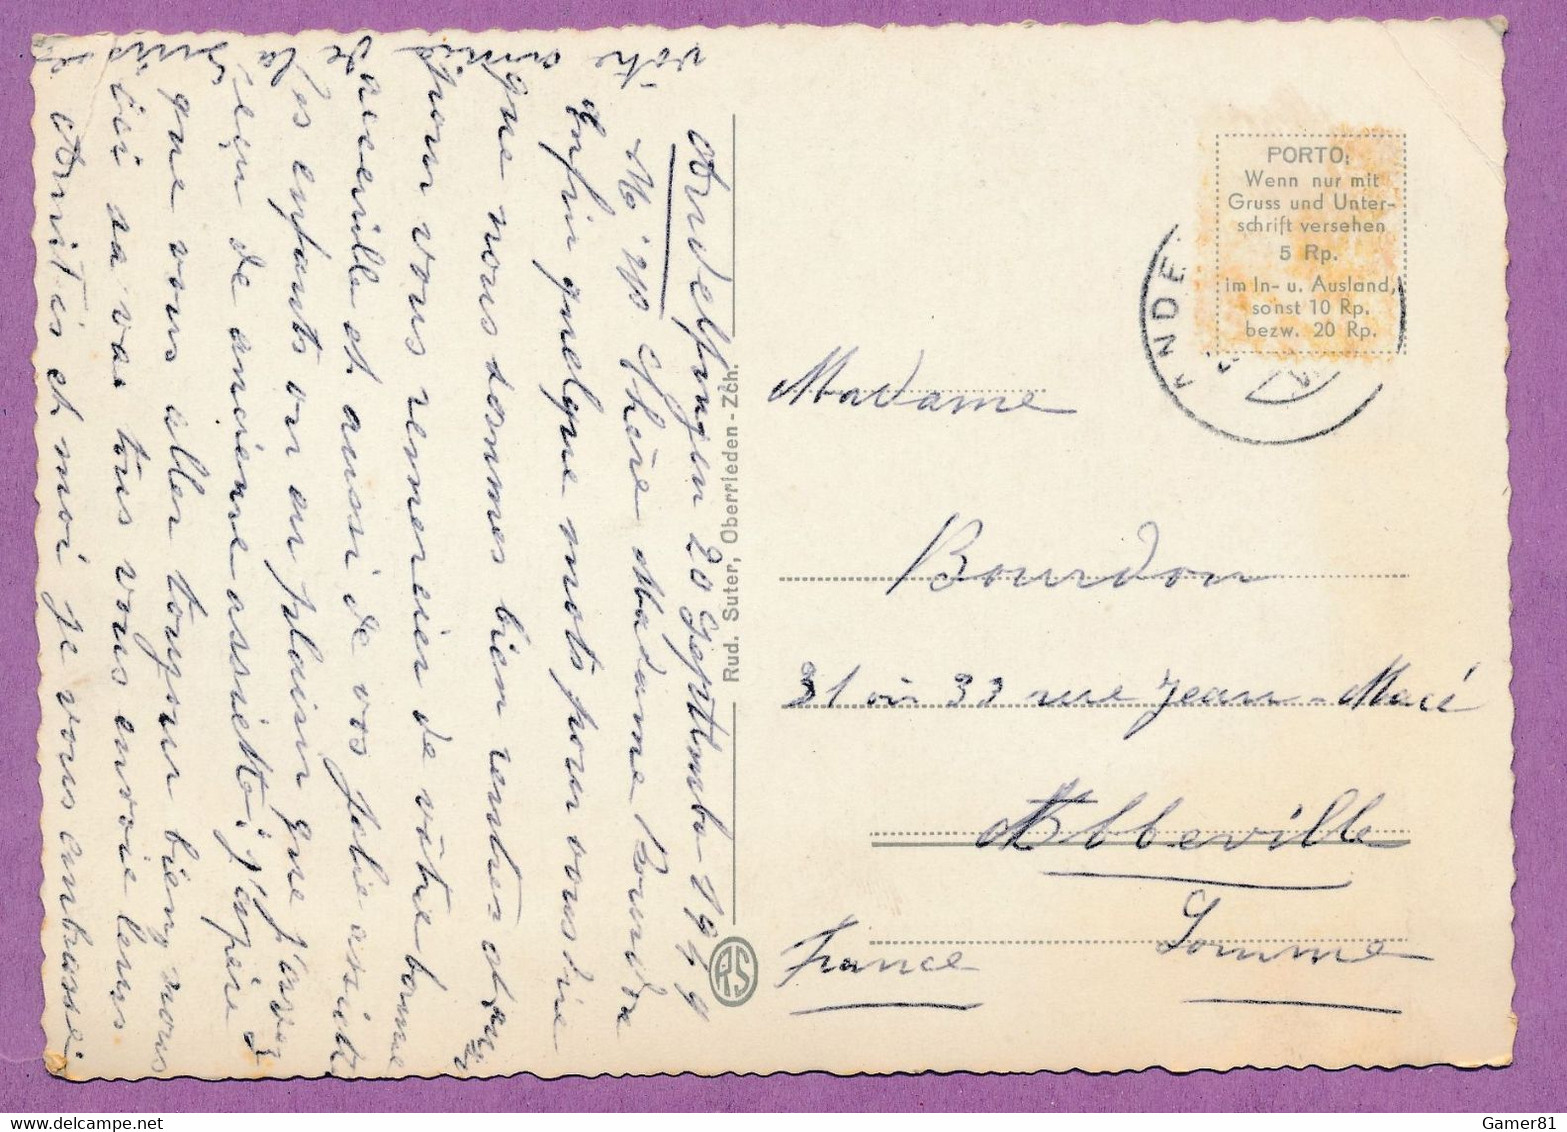 Andelfingen 20 Septembre 1949
Chère Madame Bourdon
Enfin quelque mots pour vous dire
que nous sommes bien rentrer et
pour vous remercier de vôtre bonne
acceuille et aussi de vos jolie assiette
les enfants on eu plaisir que j'avez
reçu de ancienne assiette, j'espère
que vous aller toujour bien, nous
ici sa va. tous vous envoie leurs
Amitiés et moi je vous embrasse
vôtre amie
de la
Suis
Rud. Suter, Oberrieden - Zch.
RS
PORTO:
Wenn nur mit
Gruss und Unter-
schrift versehen
5 Rp.
im In- u. Ausland,
sonst 10 Rp.
bezw. 20 Rp.
NDE
Madame
Bourdon
31 ou 33 rue Jean-Macé
Abbeville
Somme
France
Gamer81